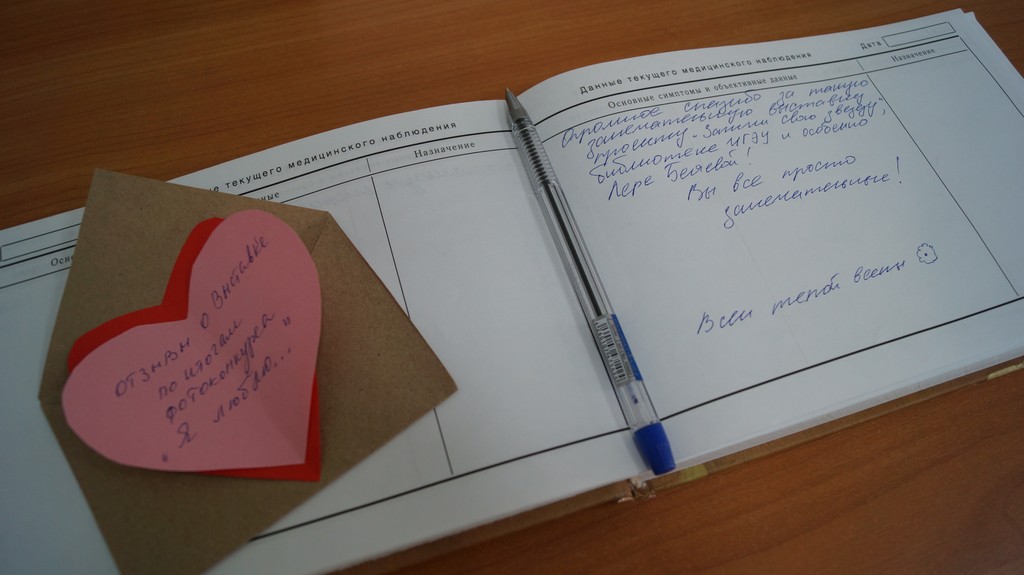 е текущего медицинского наблюдения
нные
Назначение
Осн
отзывы о выставке
по итогам
фотоконкурса
"Я люблю..."
Данные текущего медицинского наблюдения
Дата
Основные симптомы и объективные данные
Назначение
Огромное спасибо за такую
замечательную выставку
проекту - Зажги свою звезду,
библиотеке ИГЭУ и особенно
Лере Беляевой!
Вы все просто
замечательные!
Всем теплой весны